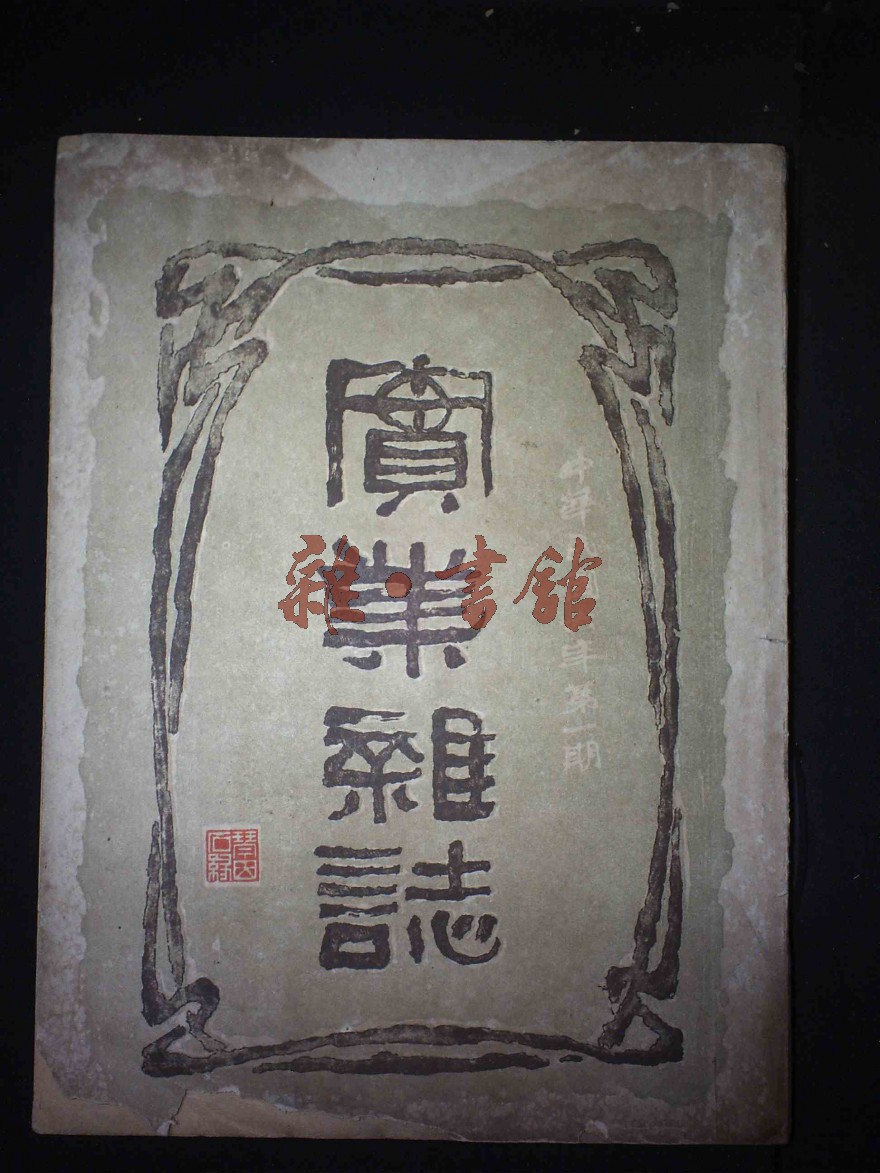 中華
年第一期
實業雜誌
雜·書館